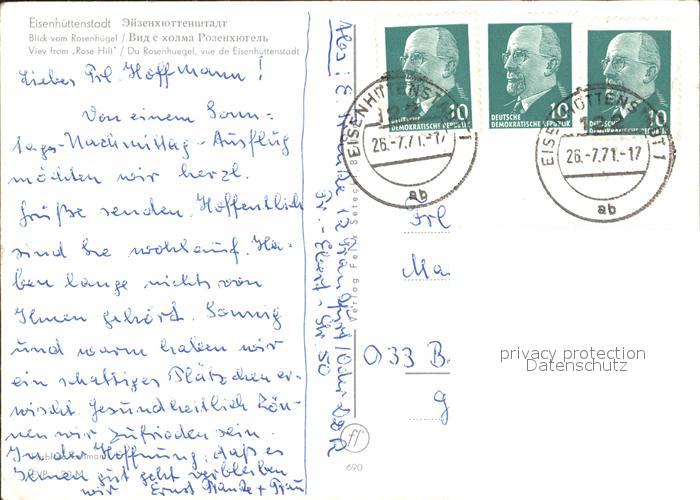 Eisenhüttenstadt Эйзенхюттенштадт
Blick vom Rosenhügel / Вид с холма Розенхюгель
Viev from „Rose Hill" / Du Rosenhuegel, vue de Eisenhüttenstadt
Liebes Frl. Hoffmann!
Von einem Sonn-
tags-Nachmittag-Ausflug
möchten wir herzl.
Grüße senden. Hoffentlich
sind Sie wohlauf. Ha-
ben lange nichts von
Ihnen gehört. Sonnig
und warm haben wir
ein schattiges Plätzchen er-
wischt. Gesundheitlich kön-
nen wir zufrieden sein.
In der Hoffnung, daß es
Ihnen gut geht verbleiben
wir Ernst + Frau
12 Frankfurt/Oder DDR
Fr.-Ebert-Str. 50
Verlag Felix Setecki
690
10 DEUTSCHE DEMOKRATISCHE REPUBLIK
10 DEUTSCHE DEMOKRATISCHE REPUBLIK
10 DEUTSCHE DEMOKRATISCHE REPUBLIK
EISENHÜTTENSTADT 1
26.-7.71.-17
ab
EISENHÜTTENSTADT 1
26.-7.71.-17
ab
Frl
Ma
033 B.
g
privacy protection
Datenschutz